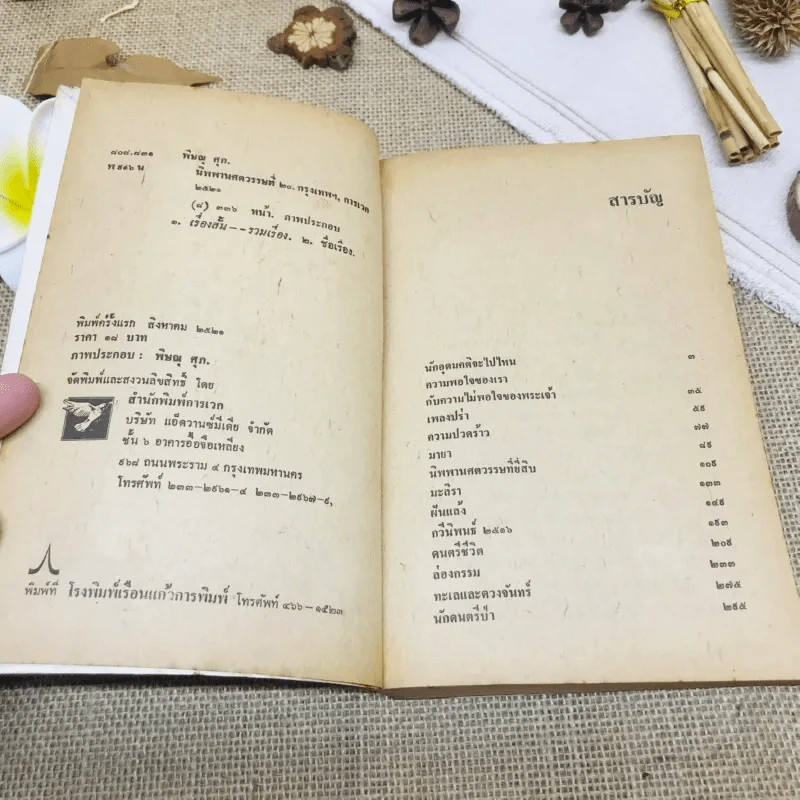 ๘๐๘.๘๓๑ พิษณุ ศุภ.
พ ๙๑๖ น นิพพานศตวรรษที่ ๒๐. กรุงเทพฯ, การเวก
๒๕๒๑
(๘) ๓๓๖ หน้า. ภาพประกอบ
๑. เรื่องสั้น--รวมเรื่อง. ๒. ชื่อเรื่อง.
พิมพ์ครั้งแรก สิงหาคม ๒๕๒๑
ราคา ๑๘ บาท
ภาพประกอบ : พิษณุ ศุภ.
จัดพิมพ์และสงวนลิขสิทธิ์ โดย
สำนักพิมพ์การเวก
บริษัท แอ็ดวานซ์มีเดีย จำกัด
ชั้น ๖ อาคารอื้อจือเหลียง
๙๖๘ ถนนพระราม ๔ กรุงเทพมหานคร
โทรศัพท์ ๒๓๓-๒๙๖๑-๔ ๒๓๓-๒๙๖๗-๙,
พิมพ์ที่ โรงพิมพ์เรือนแก้วการพิมพ์ โทรศัพท์ ๔๖๖-๑๕๒๓
สารบัญ
นักอุดมคติจะไปไหน ๓
ความพอใจของเรา
กับความไม่พอใจของพระเจ้า ๓๕
เพลงปร่า ๕๙
ความปวดร้าว ๗๗
มายา ๘๙
นิพพานศตวรรษที่ยี่สิบ ๑๐๙
มะลิรา ๑๓๓
ฝันแล้ง ๑๔๙
กวีนิพนธ์ ๒๕๑๖ ๑๙๓
ดนตรีชีวิต ๒๐๙
ล่องกรรม ๒๓๓
ทะเลและดวงจันทร์ ๒๗๕
นักดนตรีป่า ๒๙๕